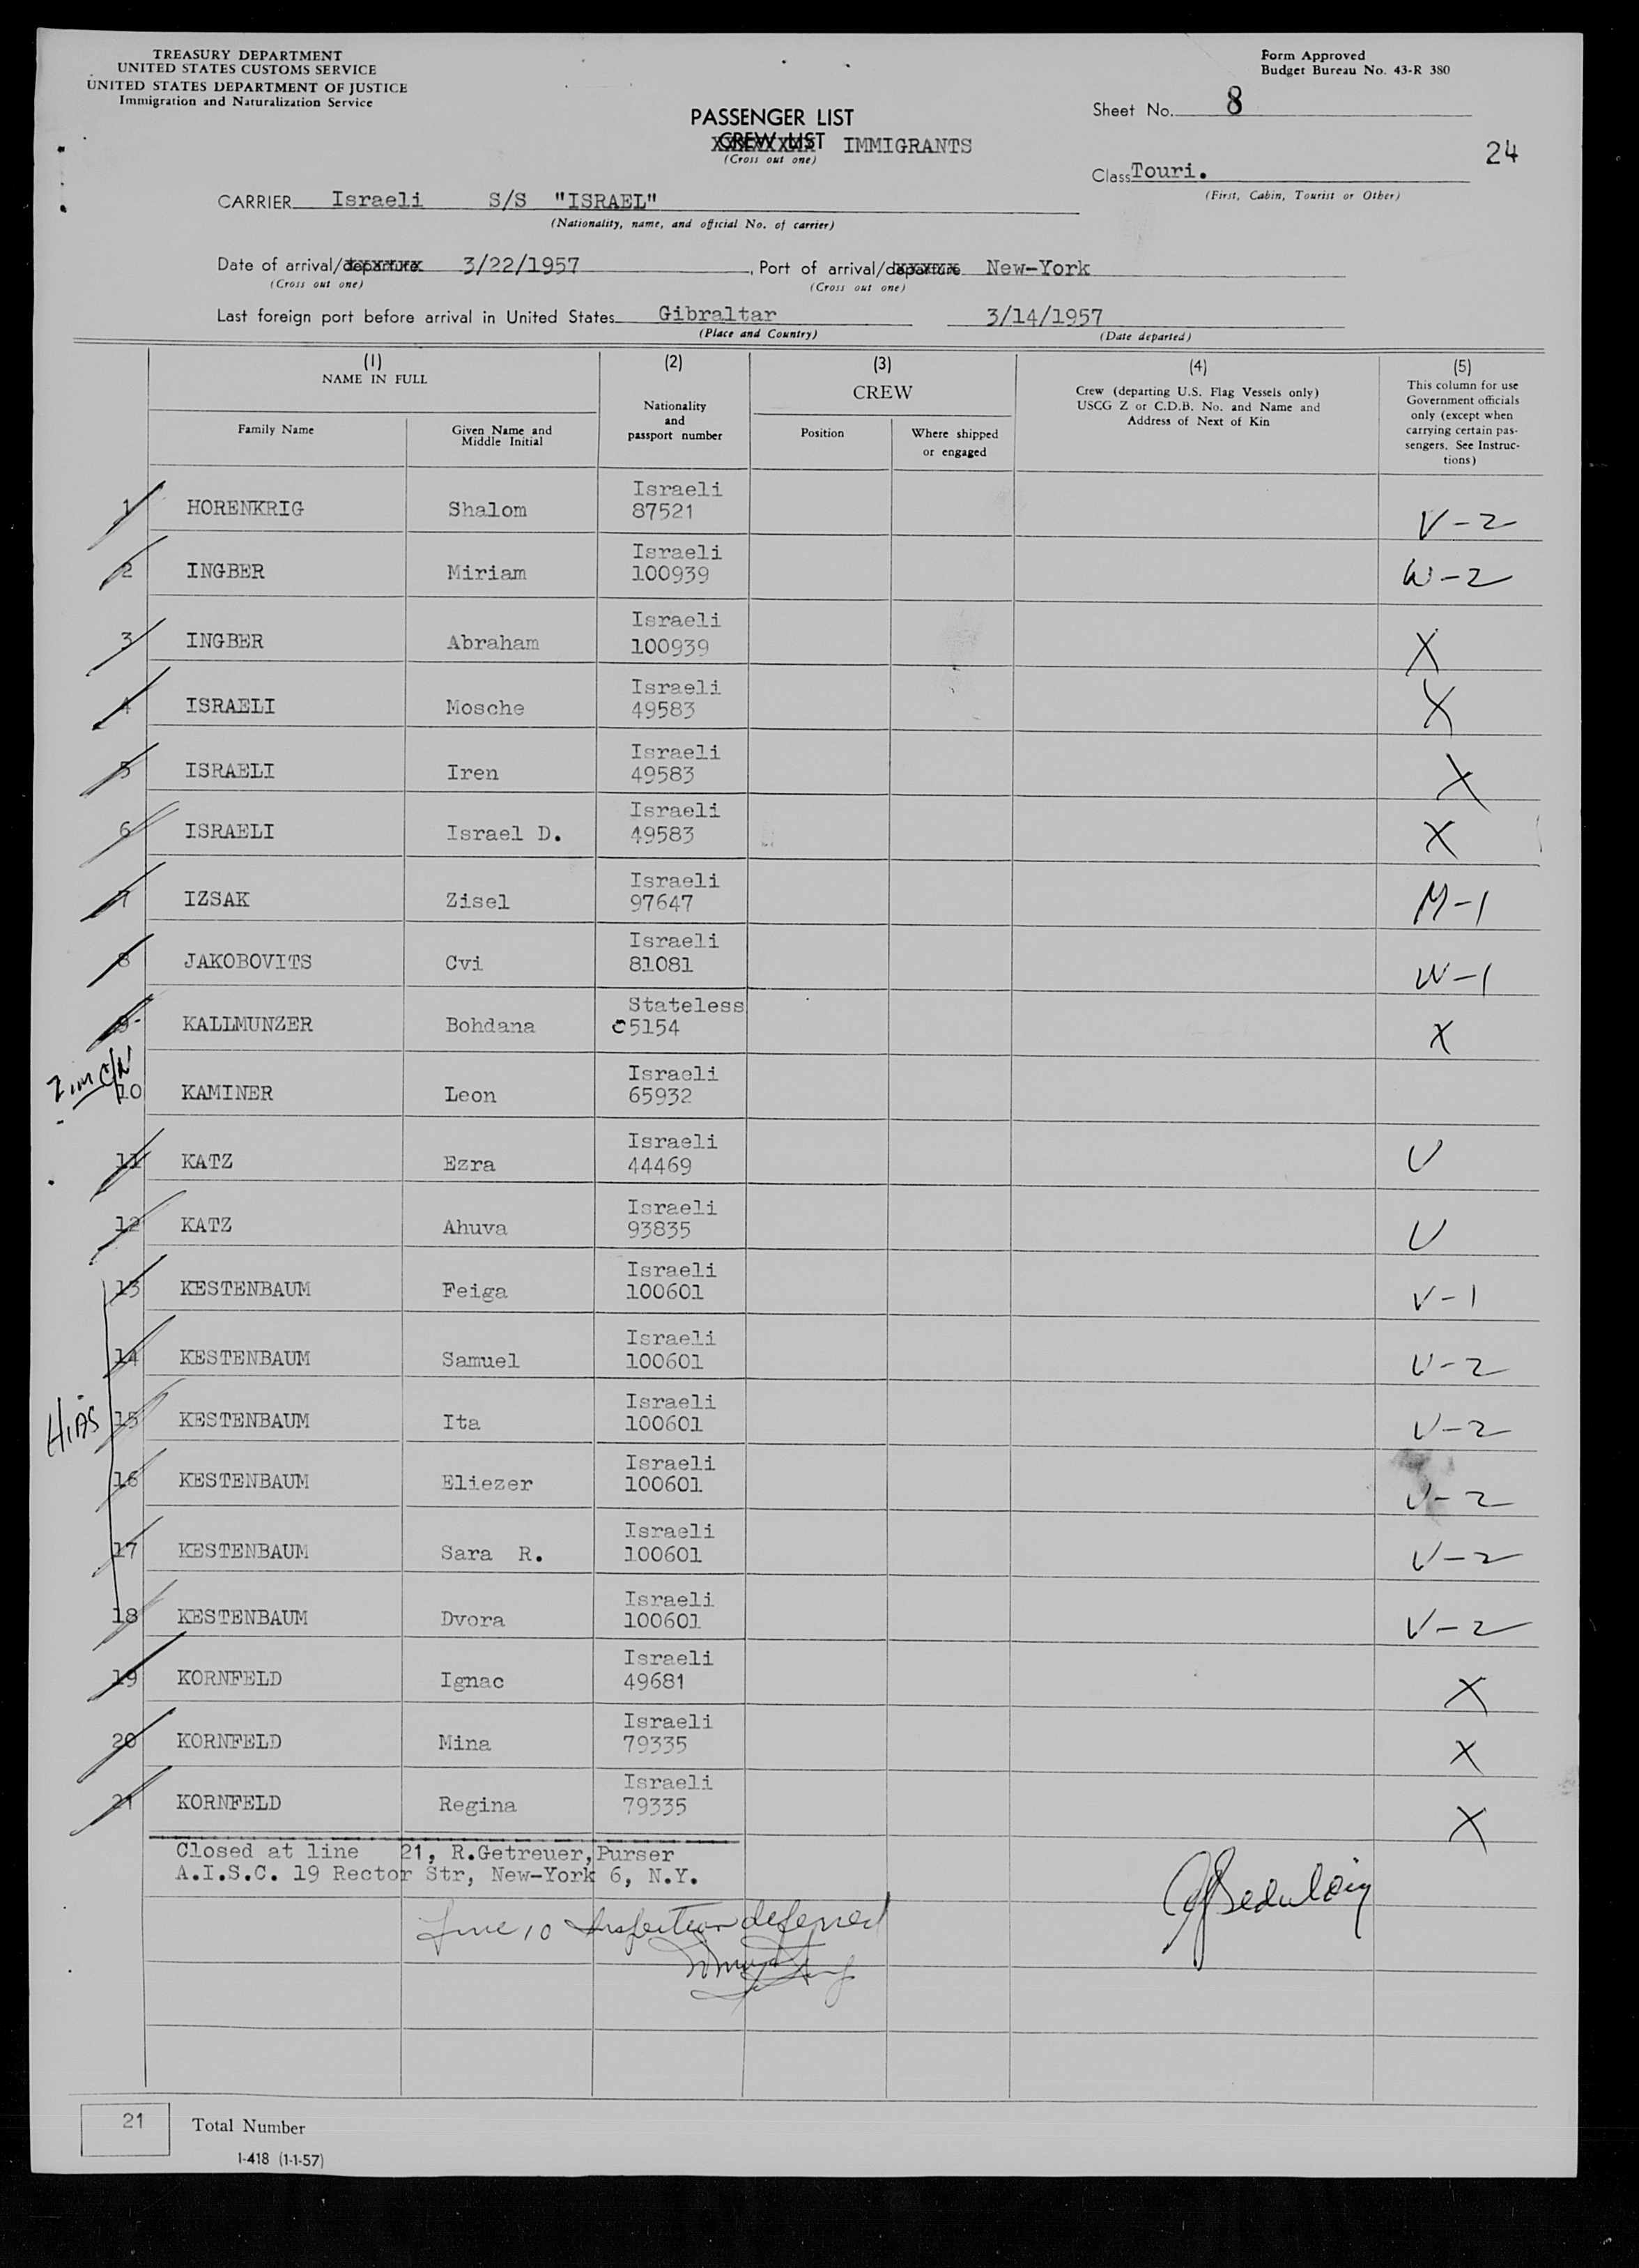 TREASURY DEPARTMENT
UNITED STATES CUSTOMS SERVICE
UNITED STATES DEPARTMENT OF JUSTICE
Immigration and Naturalization Service
Form Approved
Budget Bureau No. 43-R 380
PASSENGER LIST
CREW LIST IMMIGRANTS
(Cross out one)
Sheet No. 8
24
Class Touri.
(First, Cabin, Tourist or Other)
CARRIER Israeli S/S "ISRAEL"
(Nationality, name, and official No. of carrier)
Date of arrival/departure 3/22/1957, Port of arrival/departure New-York
(Cross out one) (Cross out one)
Last foreign port before arrival in United States Gibraltar 3/14/1957
(Place and Country) (Date departed)
(1) (2) (3) (4) (5)
NAME IN FULL
Family Name
Given Name and
Middle Initial
Nationality
and
passport number
CREW
Position
Where shipped
or engaged
Crew (departing U.S. Flag Vessels only)
USCG Z or C.D.B. No. and Name and
Address of Next of Kin
This column for use
Government officials
only (except when
carrying certain pas-
sengers. See Instruc-
tions)
Israeli
1 HORENKRIG Shalom 87521 V-2
Israeli
2 INGBER Miriam 100939 W-2
Israeli
3 INGBER Abraham 100939 X
Israeli
4 ISRAELI Mosche 49583 X
Israeli
5 ISRAELI Iren 49583 X
Israeli
6 ISRAELI Israel D. 49583 X
Israeli
7 IZSAK Zisel 97647 M-1
Israeli
8 JAKOBOVITS Cvi 81081 W-1
Stateless
9 KALLMUNZER Bohdana C5154 X
Zim C/N
Israeli
10 KAMINER Leon 65932
Israeli
11 KATZ Ezra 44469 U
Israeli
12 KATZ Ahuva 93835 U
Israeli
13 KESTENBAUM Feiga 100601 V-1
Israeli
14 KESTENBAUM Samuel 100601 V-2
HIAS
Israeli
15 KESTENBAUM Ita 100601 V-2
Israeli
16 KESTENBAUM Eliezer 100601 V-2
Israeli
17 KESTENBAUM Sara R. 100601 V-2
Israeli
18 KESTENBAUM Dvora 100601 V-2
Israeli
19 KORNFELD Ignac 49681 X
Israeli
20 KORNFELD Mina 79335 X
Israeli
21 KORNFELD Regina 79335 X
Closed at line 21, R.Getreuer,Purser
A.I.S.C. 19 Rector Str, New-York 6, N.Y.
Line 10 Inspection deferred
21 Total Number
I-418 (1-1-57)